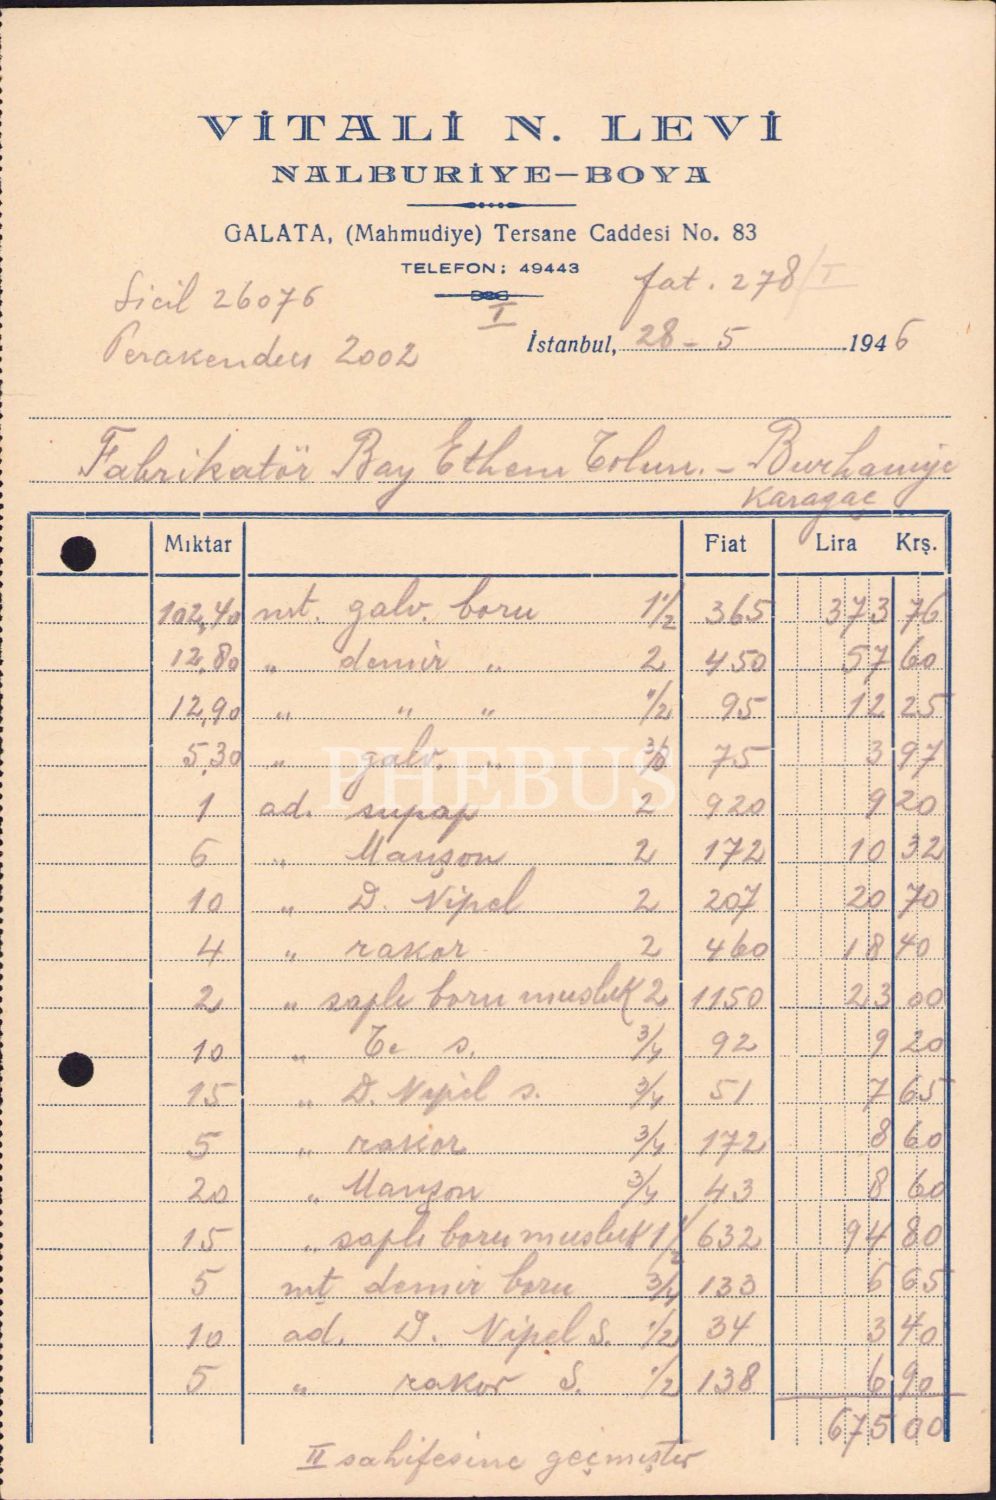 VİTALİ N. LEVİ
NALBURİYE—BOYA
GALATA, (Mahmudiye) Tersane Caddesi No. 83
TELEFON: 49443
Sicil 26076
fat. 278/I
I
Perakendeci 2002
İstanbul, 28 - 5 1946
Fabrikatör Bay Ethem Tolun. - Burhaniye
Karagaç
Mıktar Fiat Lira Krş.
102,40 mt. galv. boru 1 1/2 365 373 76
12,80 " demir " 2 450 57 60
12,90 " " " 1/2 95 12 25
5,30 " galv. " 3/8 75 3 97
1 ad. supap 2 920 9 20
6 " Manşon 2 172 10 32
10 " D. Nipel 2 207 20 70
4 " rakor 2 460 18 40
2 " saplı boru musluk 2 1150 23 00
10 " Te s. 3/4 92 9 20
15 " D. Nipel s. 3/4 51 7 65
5 " rakor 3/4 172 8 60
20 " Manşon 3/4 43 8 60
15 " saplı boru musluk 1 1/2 632 94 80
5 mt demir boru 3/4 133 6 65
10 ad. D. Nipel S. 1/2 34 3 40
5 " rakor S. 1/2 138 6 90
675 00
II sahifesine geçmiştir
PHEBUS